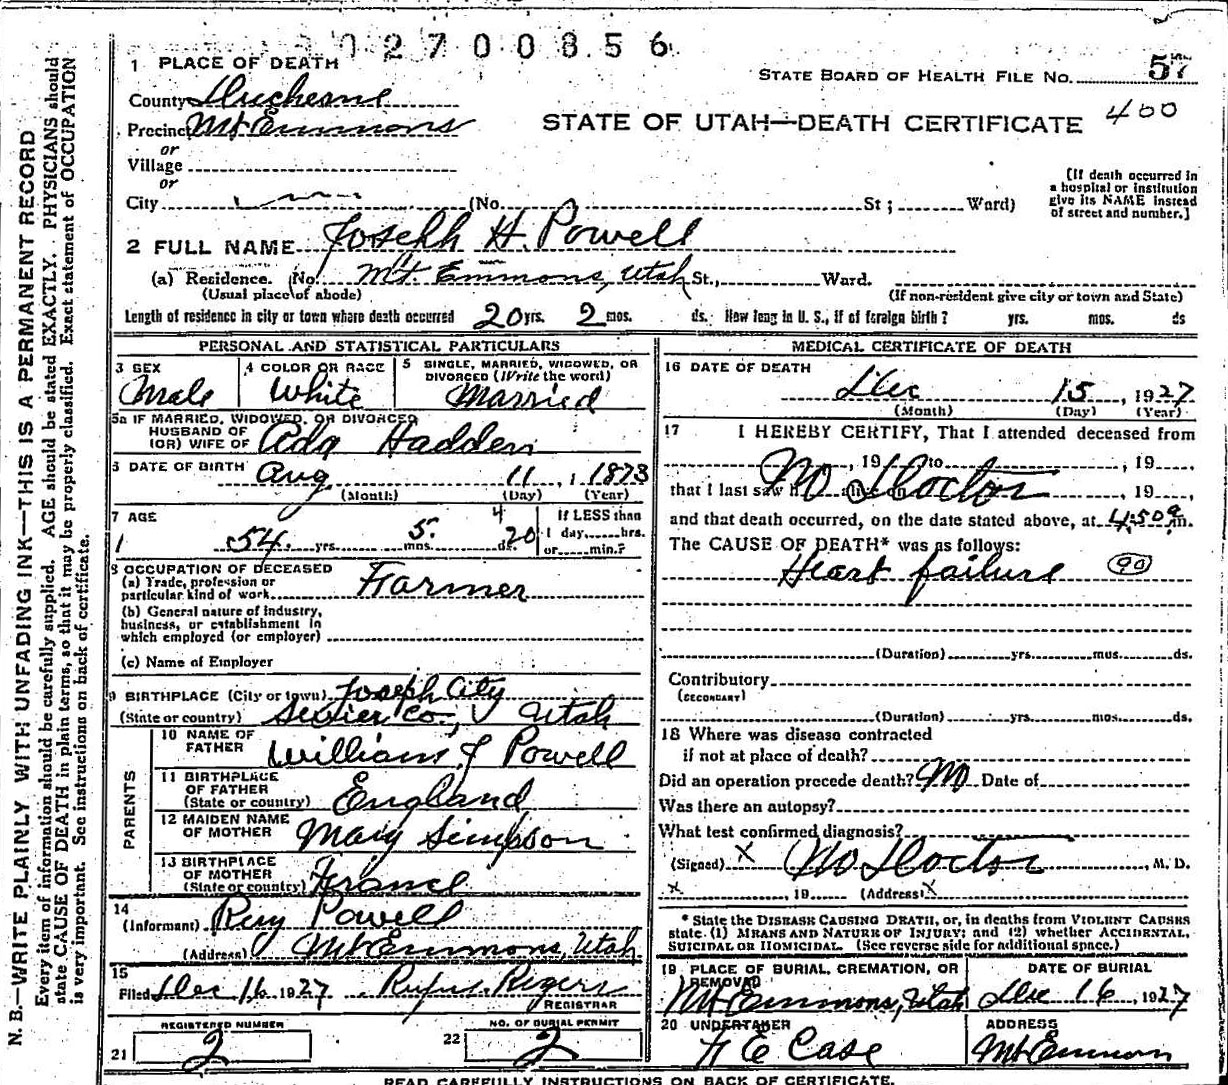 02700856
1 PLACE OF DEATH
STATE BOARD OF HEALTH FILE NO. 57
County Duchesne
400
Precinct Mt Emmons
STATE OF UTAH—DEATH CERTIFICATE
or
Village
or
City (No. St; Ward)
[If death occurred in
a hospital or institution
give its NAME instead
of street and number.]
2 FULL NAME Joseph H. Powell
(a) Residence. (No. Mt. Emmons, Utah St., Ward.
(Usual place of abode) (If non-resident give city or town and State)
Length of residence in city or town where death occurred 20 yrs. 2 mos. ds. How long in U. S., if of foreign birth? yrs. mos. ds
PERSONAL AND STATISTICAL PARTICULARS
3 SEX
Male
4 COLOR OR RACE
White
5 SINGLE, MARRIED, WIDOWED, OR
DIVORCED (Write the word)
Married
5a IF MARRIED, WIDOWED, OR DIVORCED
HUSBAND OF
(OR) WIFE OF Ada Hadden
6 DATE OF BIRTH Aug 11, 1873
(Month) (Day) (Year)
7 AGE
54 yrs. 5 mos. 4 20 ds.
If LESS than
1 day......hrs.
or......min.?
8 OCCUPATION OF DECEASED
(a) Trade, profession or
particular kind of work Farmer
(b) General nature of industry,
business, or establishment in
which employed (or employer)
(c) Name of Employer
9 BIRTHPLACE (City or town) Joseph City
(State or country) Sevier Co., Utah
PARENTS
10 NAME OF
FATHER William J Powell
11 BIRTHPLACE
OF FATHER
(State or country) England
12 MAIDEN NAME
OF MOTHER Mary Simpson
13 BIRTHPLACE
OF MOTHER
(State or country) France
14
(Informant) Roy Powell
(Address) Mt Emmons, Utah
15
Filed Dec 16 1927 Rufus Rogers
REGISTRAR
REGISTERED NUMBER
21 2
NO. OF BURIAL PERMIT
22 2
MEDICAL CERTIFICATE OF DEATH
16 DATE OF DEATH
Dec 15, 1927
(Month) (Day) (Year)
17 I HEREBY CERTIFY, That I attended deceased from
, 19 to , 19 ,
No Doctor
that I last saw h alive on , 19 ,
and that death occurred, on the date stated above, at 4:50 a m.
The CAUSE OF DEATH* was as follows:
Heart failure 90
(Duration) yrs. mos. ds.
Contributory
(SECONDARY)
(Duration) yrs. mos. ds.
18 Where was disease contracted
if not at place of death?
Did an operation precede death? No Date of
Was there an autopsy?
What test confirmed diagnosis?
(Signed) X No Doctor , M. D.
x , 19 (Address) X
* State the DISEASE CAUSING DEATH, or, in deaths from VIOLENT CAUSES
state (1) MEANS AND NATURE OF INJURY; and (2) whether ACCIDENTAL,
SUICIDAL OR HOMICIDAL. (See reverse side for additional space.)
19 PLACE OF BURIAL, CREMATION, OR
REMOVAL
Mt Emmons, Utah
DATE OF BURIAL
Dec 16, 1927
20 UNDERTAKER
F E Case
ADDRESS
Mt Emmons
READ CAREFULLY INSTRUCTIONS ON BACK OF CERTIFICATE.
N. B.—WRITE PLAINLY WITH UNFADING INK—THIS IS A PERMANENT RECORD
Every item of information should be carefully supplied. AGE should be stated EXACTLY. PHYSICIANS should
state CAUSE OF DEATH in plain terms, so that it may be properly classified. Exact statement of OCCUPATION
is very important. See instructions on back of certificate.